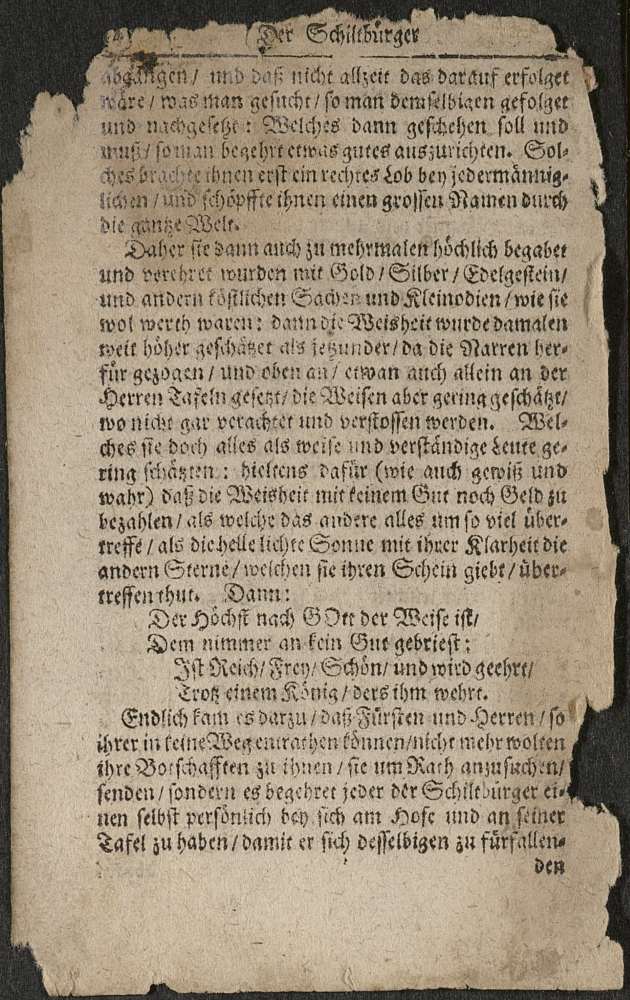 Der Schiltbürger
abgangen / und daß nicht allzeit das darauf erfolget
wäre / was man gesucht / so man demselbigen gefolget
und nachgesetzt : Welches dann geschehen soll und
muß / so man begehrt etwas gutes auszurichten. Sol-
ches brachte ihnen erst ein rechtes Lob bey jedermännig-
lichen / und schöpffte ihnen einen grossen Namen durch
die gantze Welt.
Daher sie dann auch zu mehrmalen höchlich begabet
und verehret wurden mit Gold / Silber / Edelgestein /
und andern köstlichen Sachen und Kleinodien / wie sie
wol werth waren : dann die Weisheit wurde damalen
weit höher geschätzet als jetzunder / da die Narren her-
für gezogen / und oben an / etwan auch allein an der
Herren Tafeln gesetzt / die Weisen aber gering geschätzt /
wo nicht gar verachtet und verstossen werden. Wel-
ches sie doch alles als weise und verständige Leute ge-
ring schätzten : hieltens dafür (wie auch gewiß und
wahr) daß die Weisheit mit keinem Gut noch Geld zu
bezahlen / als welche das andere alles um so viel über-
treffe / als die helle lichte Sonne mit ihrer Klarheit die
andern Sterne / welchen sie ihren Schein giebt / über-
treffen thut. Dann :
Der Höchst nach GOtt der Weise ist /
Dem nimmer an kein Gut gebriest ;
Ist Reich / Frey / Schön / und wird geehrt /
Trotz einem König / ders ihm wehrt.
Endlich kam es darzu / daß Fürsten und Herren / so
ihrer in keine Weg entrathen können / nicht mehr wolten
ihre Botschafften zu ihnen / sie um Rath anzusuchen /
senden / sondern es begehret jeder der Schiltbürger ei-
nen selbst persönlich bey sich am Hofe und an seiner
Tafel zu haben / damit er sich desselbigen zu fürfallen-
den